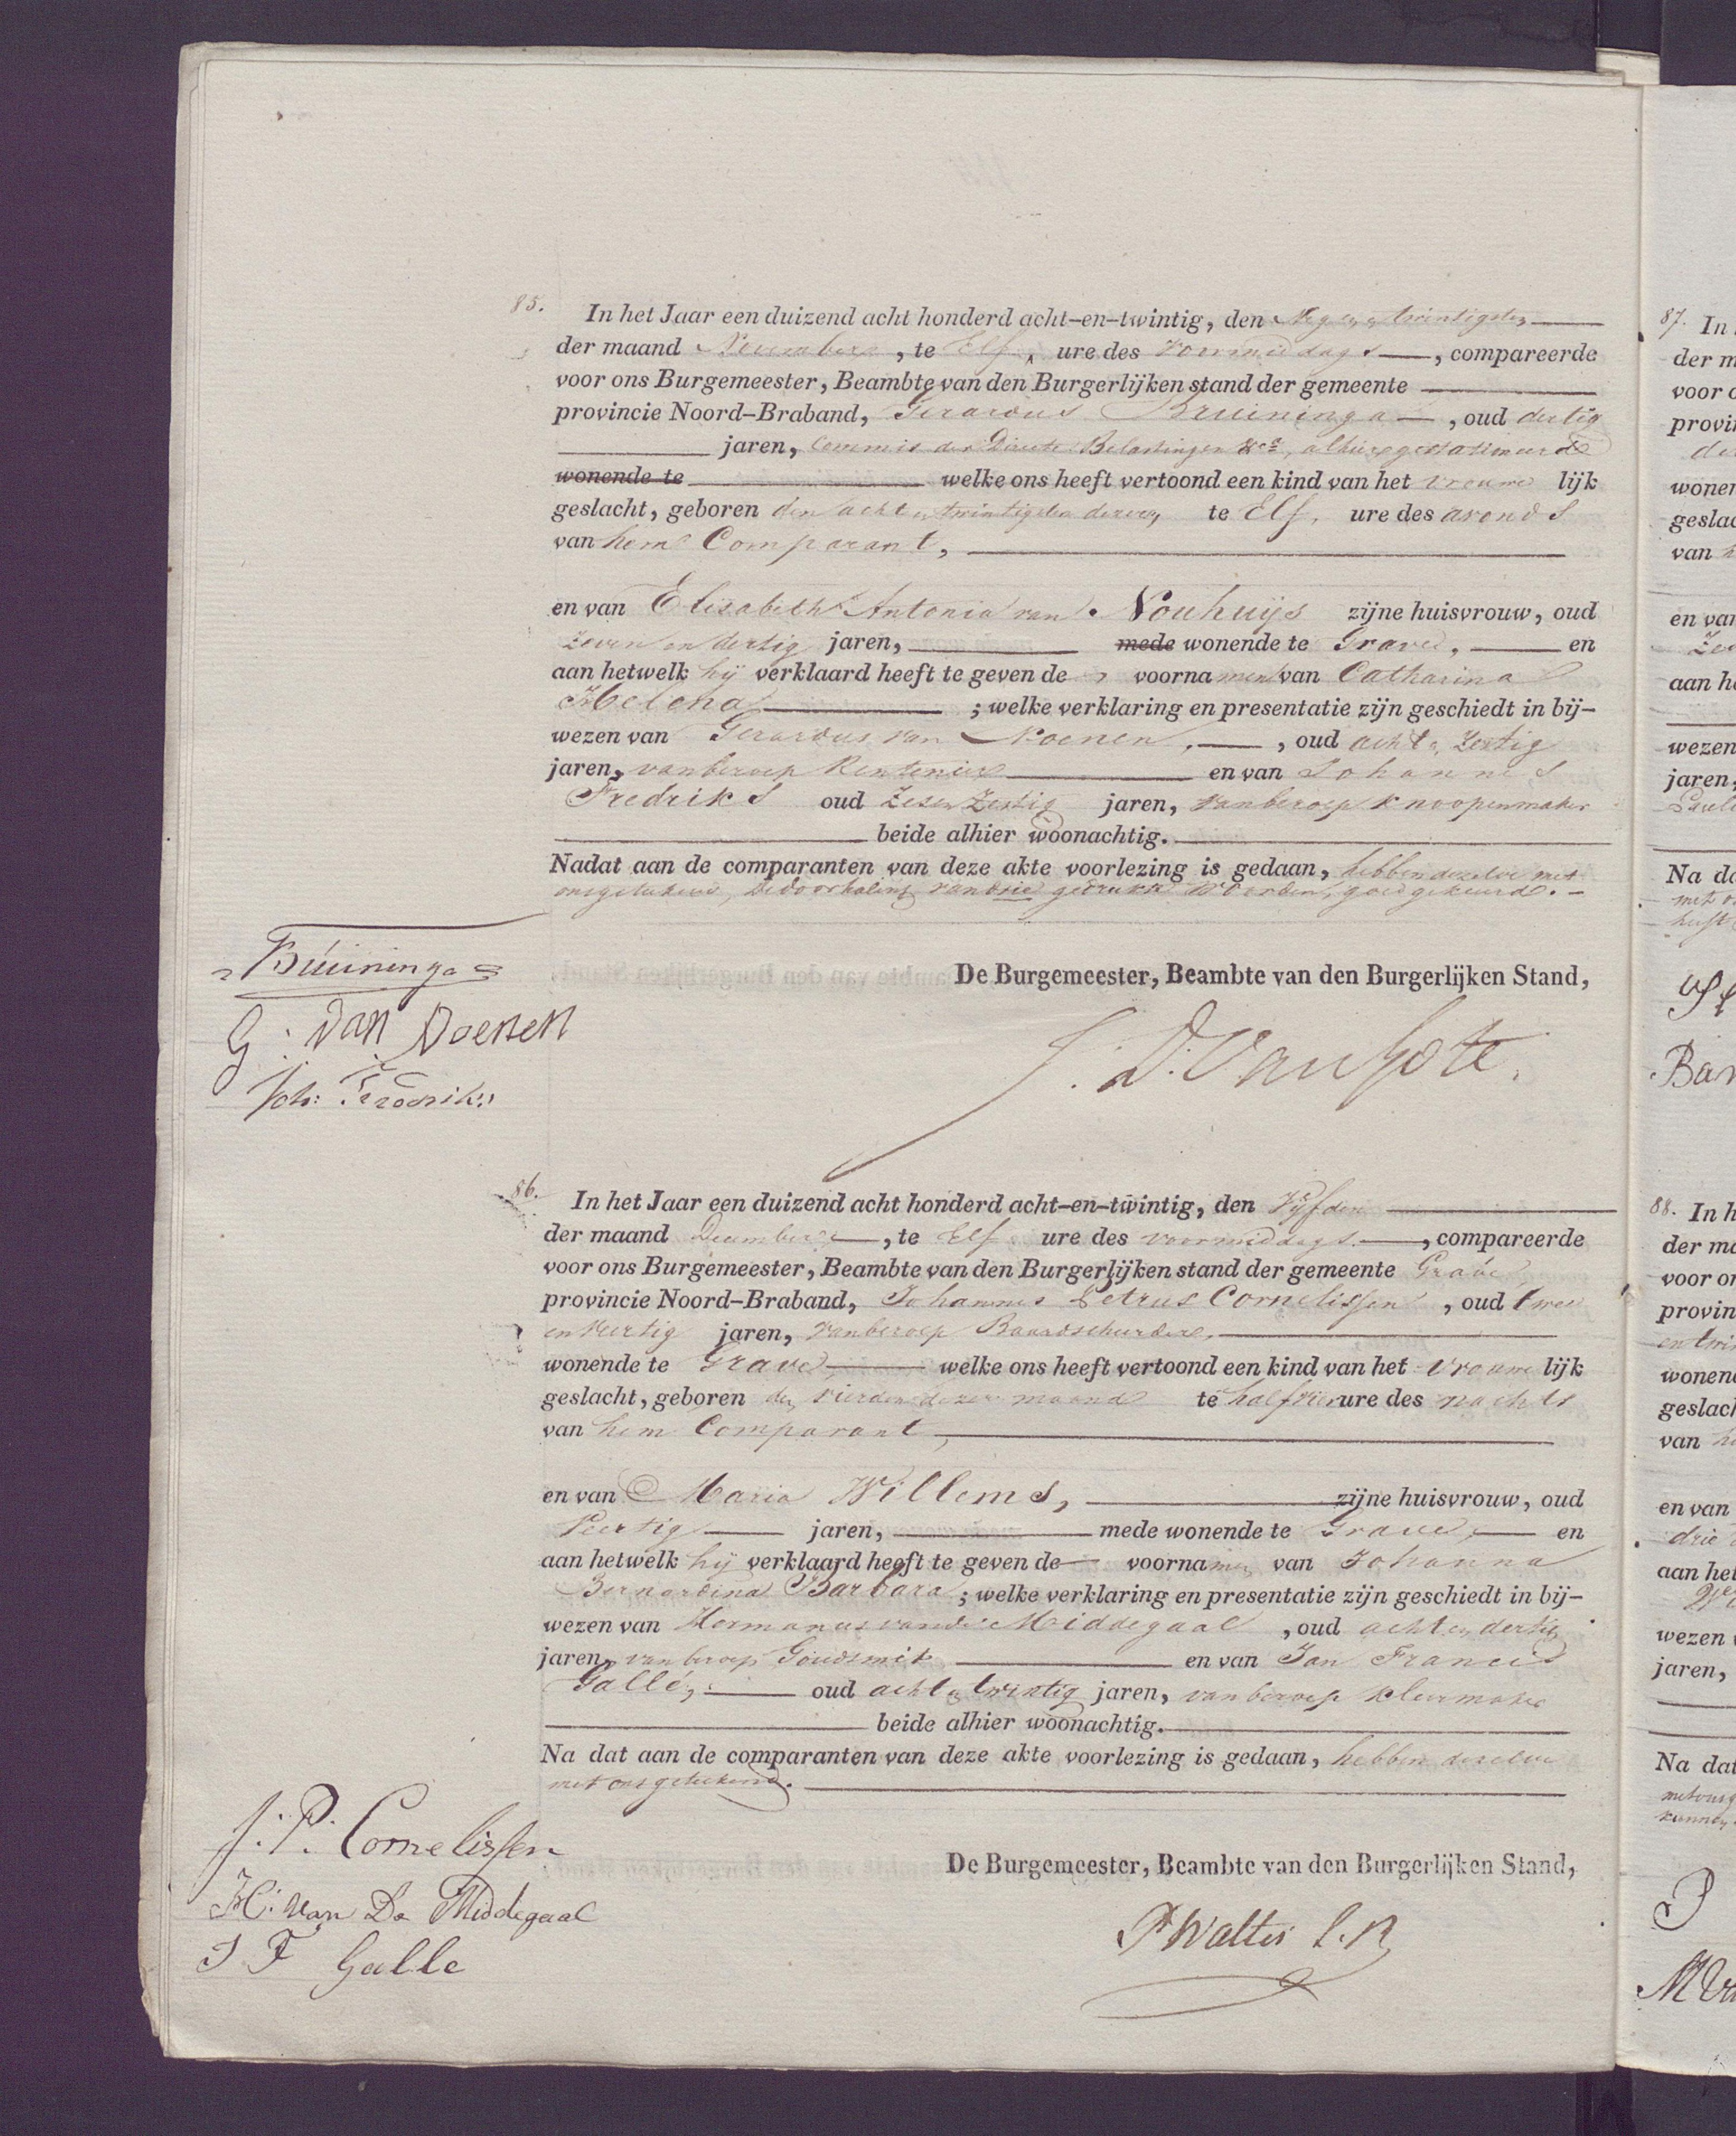 85. In het Jaar een duizend acht honderd acht-en-twintig, den Negen en twintigsten
der maand November, te Elf ure des voormiddags, compareerde
voor ons Burgemeester, Beambte van den Burgerlijken stand der gemeente
provincie Noord-Braband, Gerardus Bruininga, oud dertig
jaren, Commis der Directe Belastingen &ca, alhier gestationeerd
wonende te welke ons heeft vertoond een kind van het vrouwe lijk
geslacht, geboren den acht en twintigsten dezer, te Elf ure des avonds
van hem Comparant,
en van Elisabeth Antonia van Nouhuijs zijne huisvrouw, oud
zeven en dertig jaren, mede wonende te Grave, en
aan hetwelk hij verklaard heeft te geven de voornamen van Catharina
Helena ; welke verklaring en presentatie zijn geschiedt in bij-
wezen van Gerardus van Noenen, oud acht en zestig
jaren, van beroep Rentenier en van Johannes
Fredriks oud Zes en Zestig jaren, van beroep knoopenmaker
beide alhier woonachtig.
Nadat aan de comparanten van deze akte voorlezing is gedaan, hebben dezelve met
ons getekend, de doorhaling van drie gedrukte woorden, goedgekeurd.
Bruininga
G. van Noenen
Joh: Frederiks
De Burgemeester, Beambte van den Burgerlijken Stand,
86. In het Jaar een duizend acht honderd acht-en-twintig, den Vijfden
der maand December, te Elf ure des voormiddags, compareerde
voor ons Burgemeester, Beambte van den Burgerlijken stand der gemeente Grave
provincie Noord-Braband, Johannes Petrus Cornelissen, oud twee
en veertig jaren, van beroep Baardscheerder,
wonende te Grave welke ons heeft vertoond een kind van het vrouwe lijk
geslacht, geboren den vierden dezer maand te half vier ure des nachts
van hem Comparant,
en van Maria Willems, zijne huisvrouw, oud
Veertig jaren, mede wonende te Grave, en
aan hetwelk hij verklaard heeft te geven de voornamen van Johanna
Bernardina Barbara ; welke verklaring en presentatie zijn geschiedt in bij-
wezen van Hermanus van de Middegaal, oud acht en dertig
jaren, van beroep Goudsmit en van Jan Francis
Gallé, oud acht en twintig jaren, van beroep kleermaker
beide alhier woonachtig.
Na dat aan de comparanten van deze akte voorlezing is gedaan, hebben dezelve
met ons getekend.
J. P. Cornelissen
H: van De Middegaal
J F Galle
De Burgemeester, Beambte van den Burgerlijken Stand,
P Walter
87. In
der m
voor o
provin
wonen
geslac
van
en van
aan he
wezen
jaren,
Na da
Bar
88. In h
der ma
voor on
provin
wonen
geslach
van
en van
drie
aan het
wezen
jaren,
Na dat